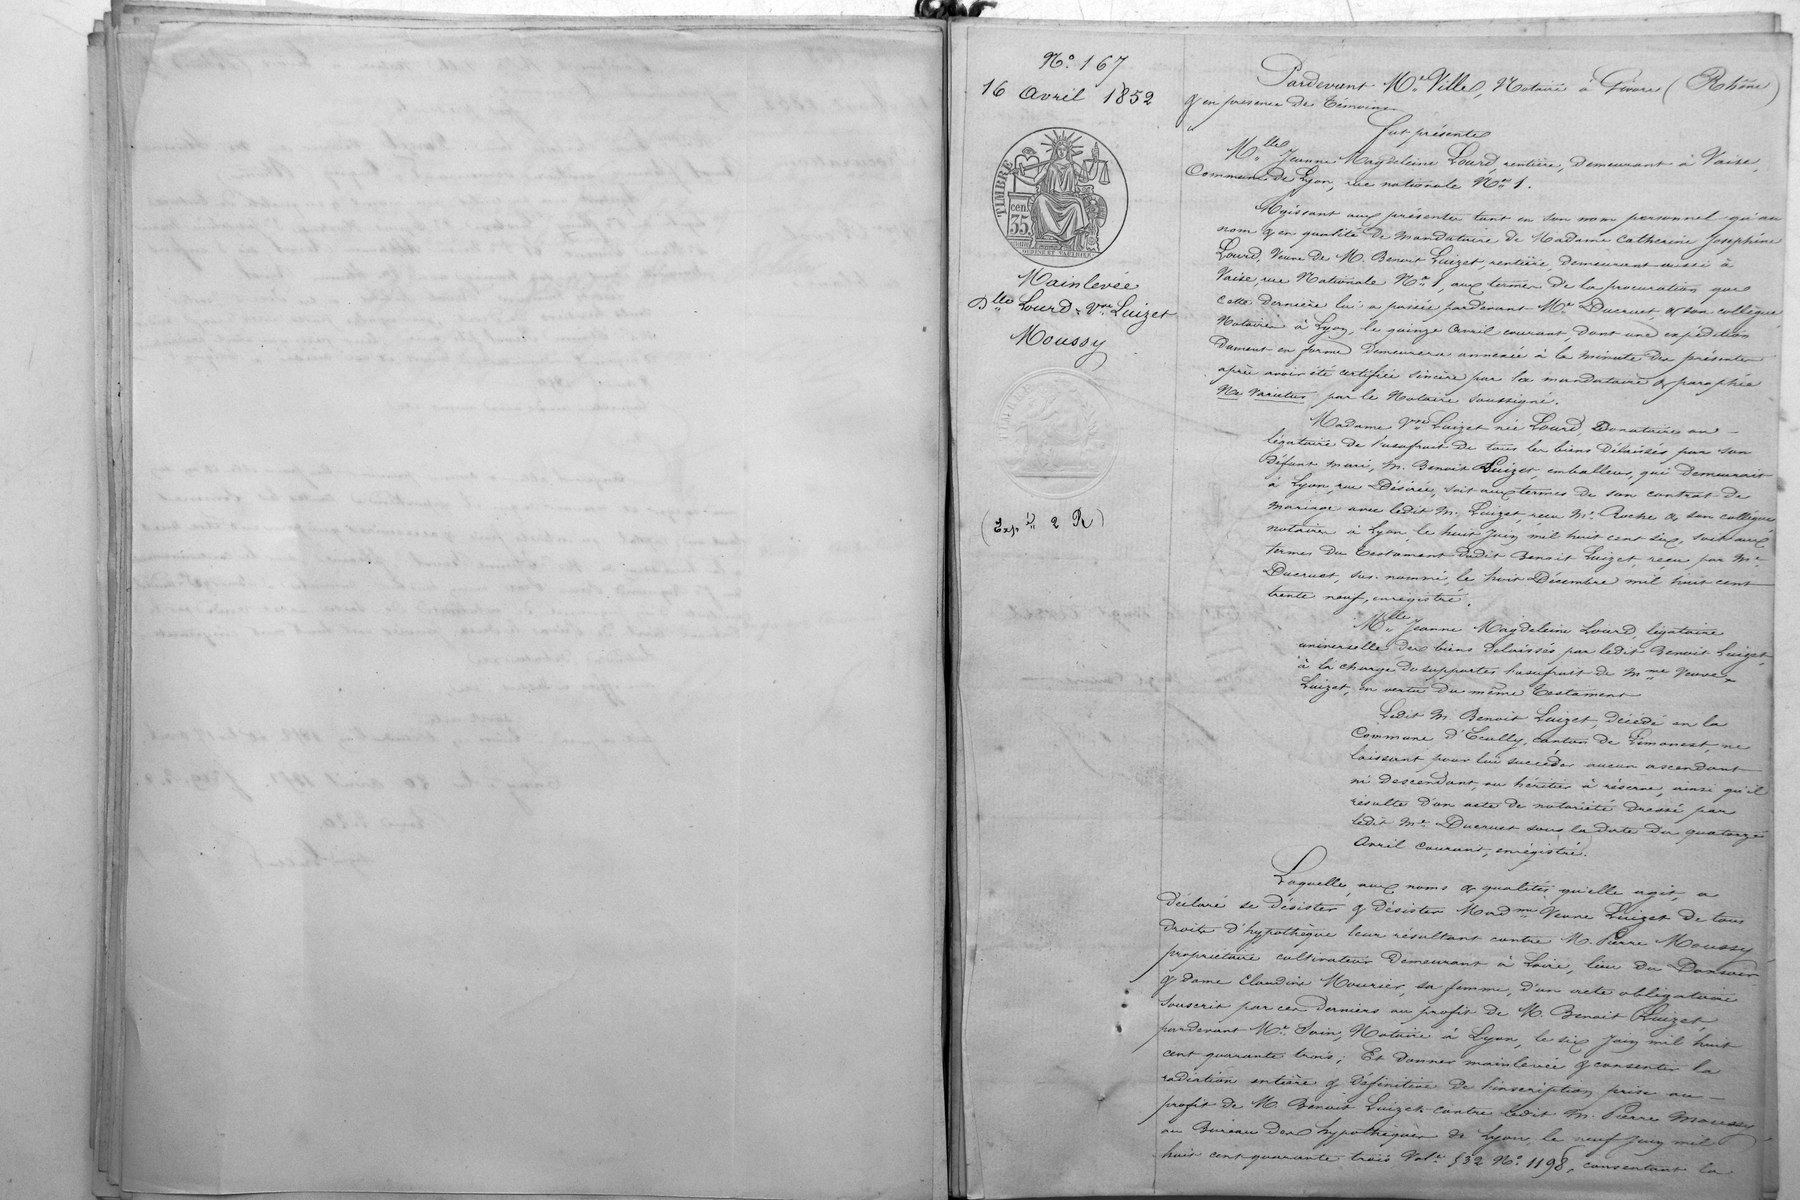 N.° 167
16 Avril 1852
TIMBRE
35 cen.
Mainlevée
D.lle Lourd & V.ve Luizet
Moussy
(Exp.d 2 R)
Pardevant M.e Ville, Notaire à Givors (Rhône)
& en présence de témoins
Fut présente
M.lle Jeanne Magdeleine Lourd, rentière, demeurant à Vaise,
Commune de Lyon, rue nationale N.° 1.
Agissant aux présentes tant en son nom personnel qu'au
nom & en qualité de mandataire de Madame Catherine Joséphine
Lourd, Veuve de M. Benoit Luizet, rentière, demeurant aussi à
Vaise, rue Nationale N.° 1, aux termes de la procuration que
cette dernière lui a passée pardevant M.e Ducruet & son collègue
Notaires à Lyon, le quinze avril courant, dont une expédition
dument en forme demeurera annexée à la minute des présentes
après avoir été certifiée sincère par la mandataire & paraphée
Ne Varietur par le Notaire soussigné.
Madame V.ve Luizet née Lourd, Donataire ou
légataire de l'usufruit de tous les biens délaissés par son
défunt mari, M. Benoit Luizet, emballeur, qui demeurait
à Lyon, rue Désirée, soit aux termes de son contrat de
mariage avec ledit M. Luizet, reçu M.e Roche & son collègue
notaires à Lyon, le huit juin mil huit cent six, soit aux
termes du testament dudit Benoit Luizet, reçu par M.e
Ducruet, sus-nommé, le huit Décembre mil huit cent
trente neuf, enregistré.
M.lle Jeanne Magdeleine Lourd, légataire
universelle des biens délaissés par ledit Benoit Luizet,
à la charge de supporter l'usufruit de M.me Veuve
Luizet, en vertu du même testament
Ledit M. Benoit Luizet, décédé en la
Commune d'Ecully, canton de Limonest, ne
laissant pour lui succéder aucun ascendant
ni descendant, ou héritier à réserve, ainsi qu'il
résulte d'un acte de notoriété dressé par
ledit M.e Ducruet sous la date du quatorze
Avril courant, enregistré.
Laquelle, aux noms & qualités qu'elle agit, a
déclaré se désister & désister Mad.me Veuve Luizet de tous
droits d'hypothèque leur résultant contre M. Pierre Moussy
propriétaire cultivateur demeurant à Loire, lieu du
& dame Claudine Mourier, sa femme, d'un acte obligatoire
souscrit par ces derniers au profit de M. Benoit Luizet,
pardevant M.e Notaire à Lyon, le six Juin mil huit
cent quarante trois; Et donner mainlevée & consentir la
radiation entière & définitive de l'inscription prise au
profit de M. Benoit Luizet contre ledit M. Pierre Moussy
au Bureau des hypothèques de Lyon le neuf juin mil
huit cent quarante trois Vol.e 532 N.° 1198, consentant la